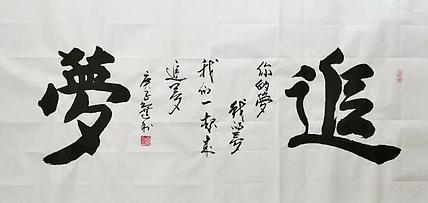 追
夢
你的夢
我的夢
我们一起来
追夢
庚子